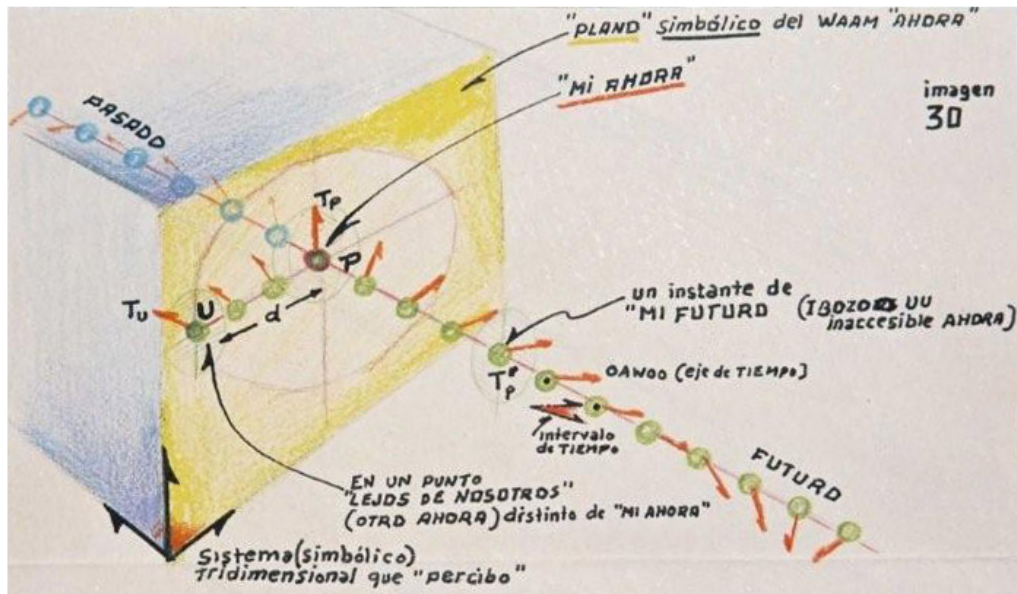 "PLANO" simbólico del WAAM "AHORA"
"MI AHORA"
imagen
30
PASADO
TP
P
U
TU
d
un instante de
"MI FUTURO (IBOZOO UU
inaccesible AHORA)
T'P
OAWOO (eje de TIEMPO)
intervalo
de TIEMPO
FUTURO
EN UN PUNTO
"LEJOS DE NOSOTROS"
(OTRO AHORA) distinto de "MI AHORA"
Sistema (simbólico)
Tridimensional que "percibo"